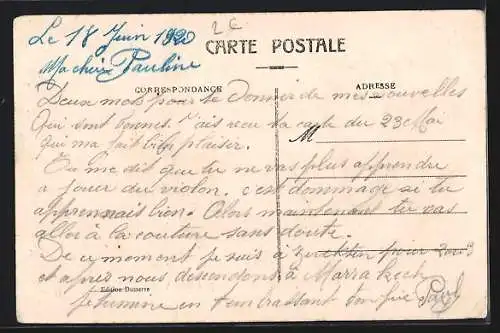 Le 18 Juin 1920
2 €
CARTE POSTALE
Ma chère Pauline
CORRESPONDANCE
ADRESSE
Deux mots pour te donner de mes nouvelles
qui sont bonnes. J'ais reçu ta carte du 23 Mai
M
qui ma fait bien plaisir.
Tu me dit que tu ne vas plus apprendre
a jouer du violon. c'est dommage si tu
apprennais bien. Alors maintenant tu vas
aller à la couture sans doute.
De ce moment je suis à pour 2 ou 3
et après nous descendons à Marrakech
Edition Dumerre
je termine en t'embrassant ton